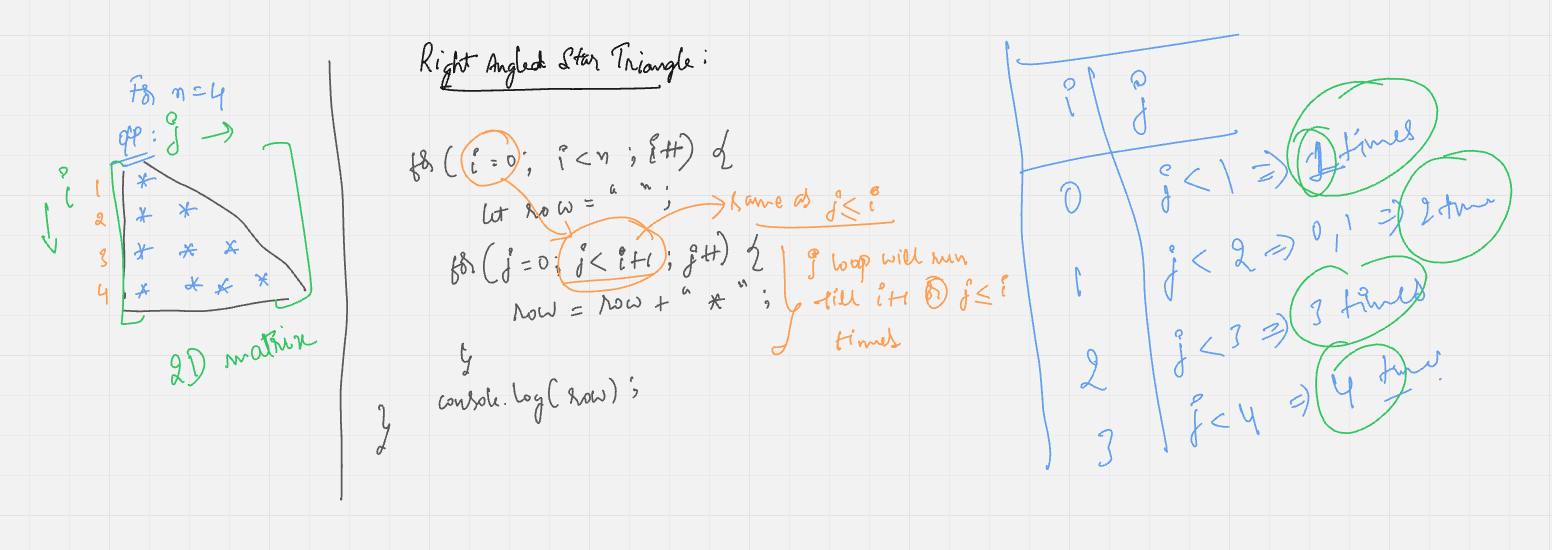 For n=4
o/p : j →
i
1 *
2 * *
3 * * *
4 * * * *
2D matrix
Right Angled Star Triangle :
for ( i = 0 ; i < n ; i++) {
let row = " " ;
for ( j = 0 ; j < i+1 ; j++) {
row = row + " * " ;
}
console.log( row ) ;
}
→ Same as j ≤ i
j loop will run
till i+1 or j ≤ i
times
i j
0 j < 1 => 1 times
1 j < 2 => 0, 1 => 2 time
2 j < 3 => 3 times
3 j < 4 => 4 times